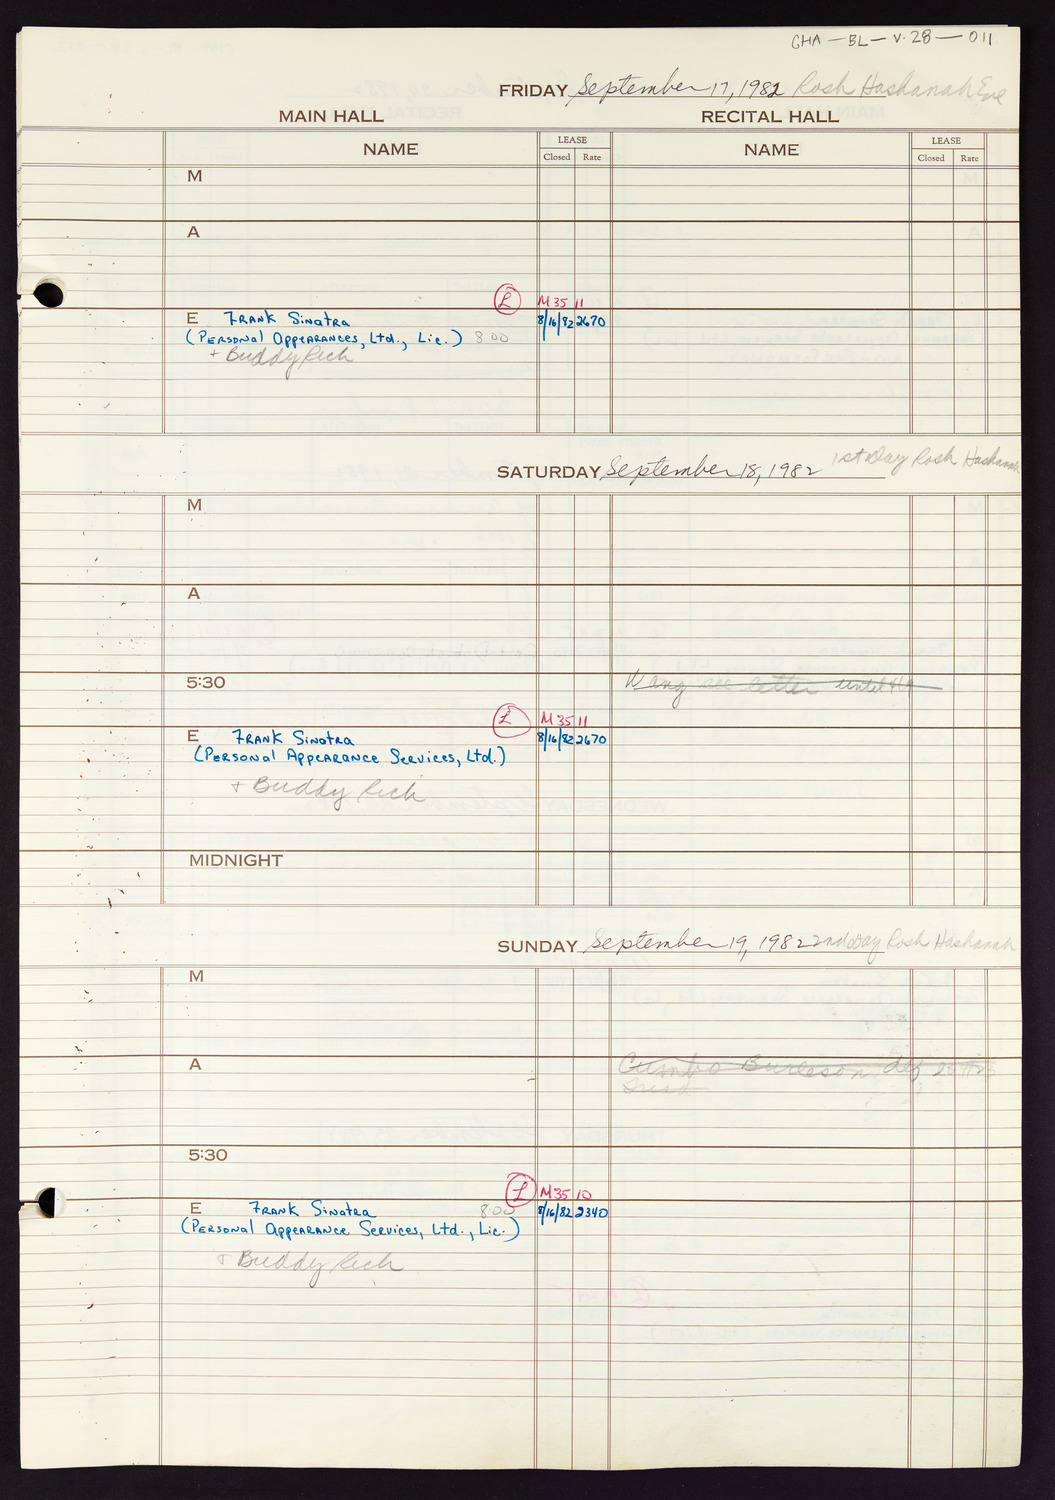 CHA-BL-V.28-011
FRIDAY September 17, 1982 Rosh Hashanah Eve
MAIN HALL RECITAL HALL
NAME LEASE NAME LEASE
Closed Rate Closed Rate
M
A
L M35 11
E FRANK SINATRA 8/16/82 2670
(PERSONAL APPEARANCES, Ltd., Lic.) 8:00
+ Buddy Rich
SATURDAY September 18, 1982 1st Day Rosh Hashanah
M
A
5:30 Wang see letter until
L M35 11
E FRANK SINATRA 8/16/82 2670
(PERSONAL APPEARANCE SERVICES, Ltd.)
+ Buddy Rich
MIDNIGHT
SUNDAY September 19, 1982 2nd Day Rosh Hashanah
M
A Burleson def
5:30
L M35 10
E FRANK SINATRA 8:00 8/16/82 2340
(PERSONAL APPEARANCE SERVICES, Ltd., Lic.)
+ Buddy Rich